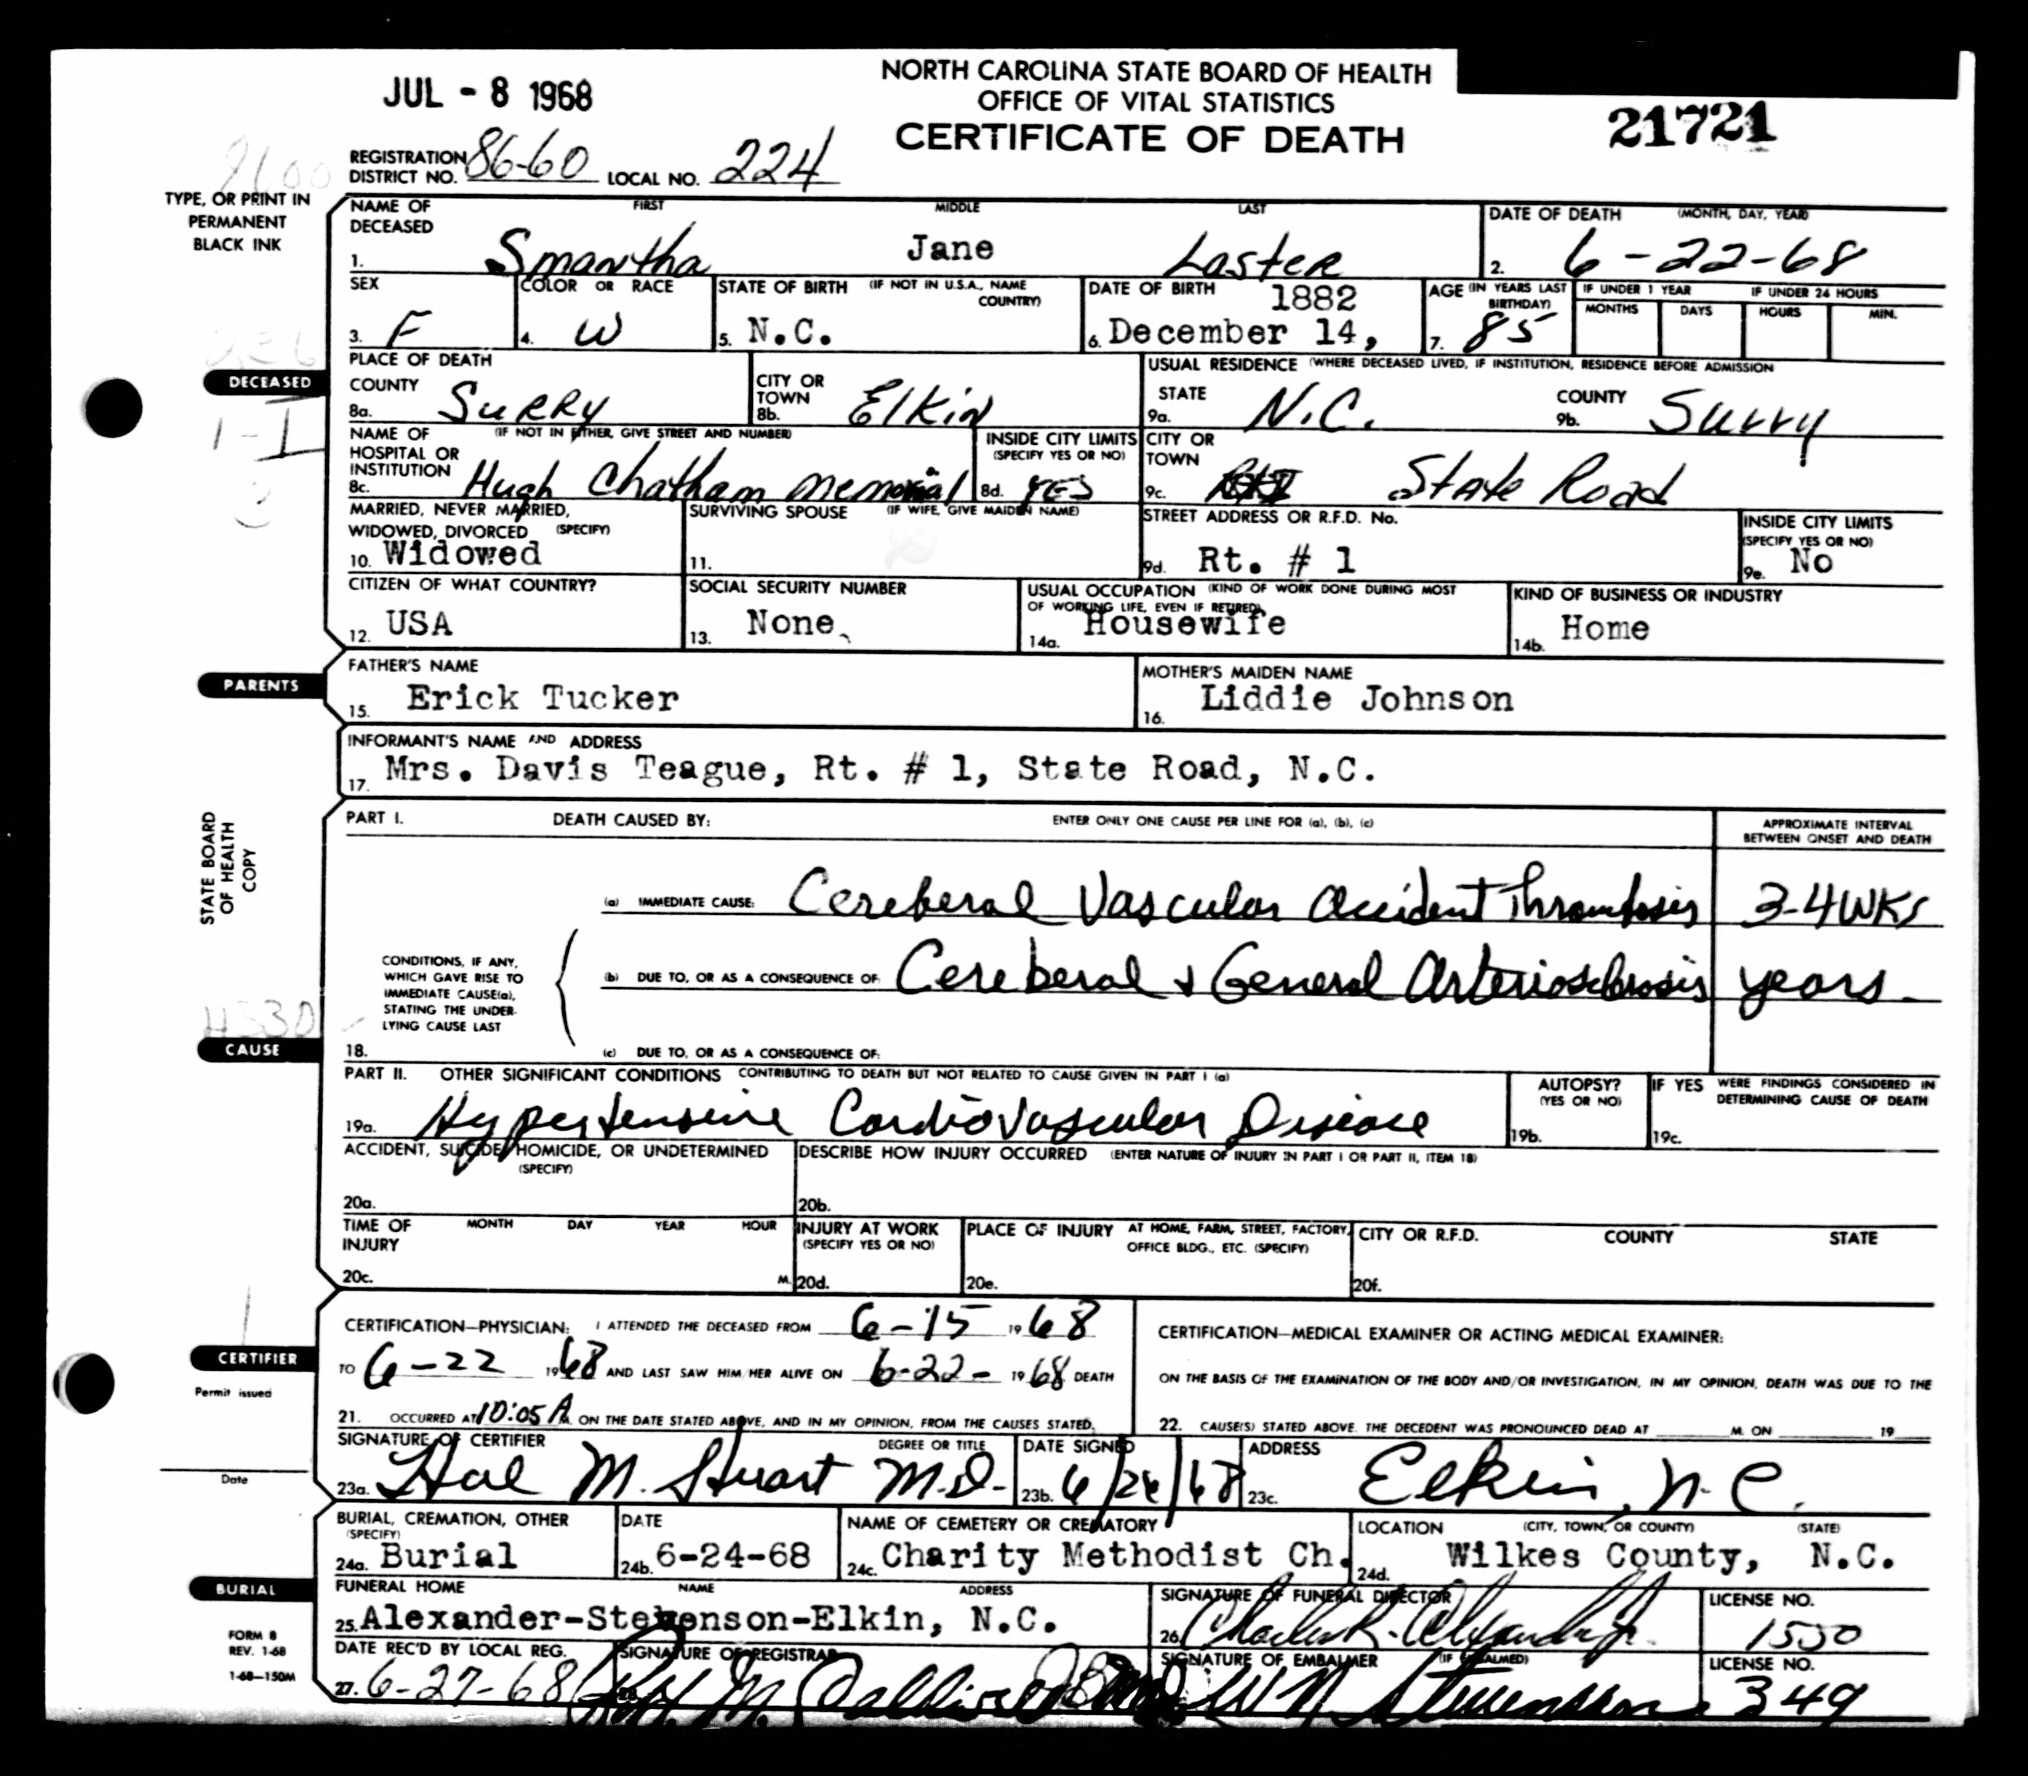 JUL - 8 1968
NORTH CAROLINA STATE BOARD OF HEALTH
OFFICE OF VITAL STATISTICS
CERTIFICATE OF DEATH
21721
REGISTRATION DISTRICT NO. 86-60 LOCAL NO. 224
TYPE, OR PRINT IN
PERMANENT
BLACK INK
NAME OF DECEASED FIRST MIDDLE LAST
1. Smantha Jane Laster
DATE OF DEATH (MONTH, DAY, YEAR)
2. 6-22-68
SEX
3. F
COLOR OR RACE
4. W
STATE OF BIRTH (IF NOT IN U.S.A., NAME COUNTRY)
5. N.C.
DATE OF BIRTH 1882
6. December 14,
AGE (IN YEARS LAST BIRTHDAY)
7. 85
IF UNDER 1 YEAR
MONTHS DAYS
IF UNDER 24 HOURS
HOURS MIN.
DECEASED
1-I
PLACE OF DEATH
COUNTY
8a. Surry
CITY OR TOWN
8b. Elkin
USUAL RESIDENCE (WHERE DECEASED LIVED, IF INSTITUTION, RESIDENCE BEFORE ADMISSION
STATE
9a. N.C.
COUNTY
9b. Surry
NAME OF HOSPITAL OR INSTITUTION (IF NOT IN EITHER, GIVE STREET AND NUMBER)
8c. Hugh Chatham Memorial
INSIDE CITY LIMITS (SPECIFY YES OR NO)
8d. YES
CITY OR TOWN
9c. State Road
MARRIED, NEVER MARRIED,
WIDOWED, DIVORCED (SPECIFY)
10. Widowed
SURVIVING SPOUSE (IF WIFE, GIVE MAIDEN NAME)
11.
STREET ADDRESS OR R.F.D. No.
9d. Rt. # 1
INSIDE CITY LIMITS (SPECIFY YES OR NO)
9e. No
CITIZEN OF WHAT COUNTRY?
12. USA
SOCIAL SECURITY NUMBER
13. None
USUAL OCCUPATION (KIND OF WORK DONE DURING MOST OF WORKING LIFE, EVEN IF RETIRED)
14a. Housewife
KIND OF BUSINESS OR INDUSTRY
14b. Home
PARENTS
FATHER'S NAME
15. Erick Tucker
MOTHER'S MAIDEN NAME
16. Liddie Johnson
INFORMANT'S NAME AND ADDRESS
17. Mrs. Davis Teague, Rt. # 1, State Road, N.C.
STATE BOARD
OF HEALTH
COPY
PART I. DEATH CAUSED BY: ENTER ONLY ONE CAUSE PER LINE FOR (a), (b), (c)
APPROXIMATE INTERVAL BETWEEN ONSET AND DEATH
(a) IMMEDIATE CAUSE: Cereberal Vascular Accident Thrombosis 3-4 WKS
CONDITIONS, IF ANY,
WHICH GAVE RISE TO
IMMEDIATE CAUSE(a),
STATING THE UNDER-
LYING CAUSE LAST
(b) DUE TO, OR AS A CONSEQUENCE OF: Cereberal & General Arteriosclerosis years
CAUSE
18. (c) DUE TO, OR AS A CONSEQUENCE OF:
PART II. OTHER SIGNIFICANT CONDITIONS CONTRIBUTING TO DEATH BUT NOT RELATED TO CAUSE GIVEN IN PART I (a)
19a. Hypertensive Cardiovascular Disease
AUTOPSY? (YES OR NO)
19b.
IF YES WERE FINDINGS CONSIDERED IN DETERMINING CAUSE OF DEATH
19c.
ACCIDENT, SUICIDE, HOMICIDE, OR UNDETERMINED (SPECIFY)
20a.
DESCRIBE HOW INJURY OCCURRED (ENTER NATURE OF INJURY IN PART I OR PART II, ITEM 18)
20b.
TIME OF INJURY MONTH DAY YEAR HOUR
20c. M.
INJURY AT WORK (SPECIFY YES OR NO)
20d.
PLACE OF INJURY AT HOME, FARM, STREET, FACTORY, OFFICE BLDG., ETC. (SPECIFY)
20e.
CITY OR R.F.D. COUNTY STATE
20f.
CERTIFIER
Permit issued
Date
CERTIFICATION—PHYSICIAN: I ATTENDED THE DECEASED FROM 6-15 1968
TO 6-22 1968 AND LAST SAW HIM/HER ALIVE ON 6-22- 1968 DEATH
21. OCCURRED AT 10:05 A M. ON THE DATE STATED ABOVE, AND IN MY OPINION, FROM THE CAUSES STATED.
CERTIFICATION—MEDICAL EXAMINER OR ACTING MEDICAL EXAMINER:
ON THE BASIS OF THE EXAMINATION OF THE BODY AND/OR INVESTIGATION, IN MY OPINION, DEATH WAS DUE TO THE
22. CAUSE(S) STATED ABOVE. THE DECEDENT WAS PRONOUNCED DEAD AT M. ON 19
SIGNATURE OF CERTIFIER DEGREE OR TITLE
23a. Hal M. Stuart M.D.
DATE SIGNED
23b. 6/26/68
ADDRESS
23c. Elkin, N.C.
BURIAL, CREMATION, OTHER (SPECIFY)
24a. Burial
DATE
24b. 6-24-68
NAME OF CEMETERY OR CREMATORY
24c. Charity Methodist Ch.
LOCATION (CITY, TOWN, OR COUNTY) (STATE)
24d. Wilkes County, N.C.
BURIAL
FUNERAL HOME NAME ADDRESS
25. Alexander-Stevenson-Elkin, N.C.
SIGNATURE OF FUNERAL DIRECTOR
26. Charles R. Alexander Jr.
LICENSE NO.
1550
FORM 8
REV. 1-68
1-68—150M
DATE REC'D BY LOCAL REG.
27. 6-27-68
SIGNATURE OF REGISTRAR
M.
SIGNATURE OF EMBALMER (IF EMBALMED)
W N Stevenson
LICENSE NO.
349